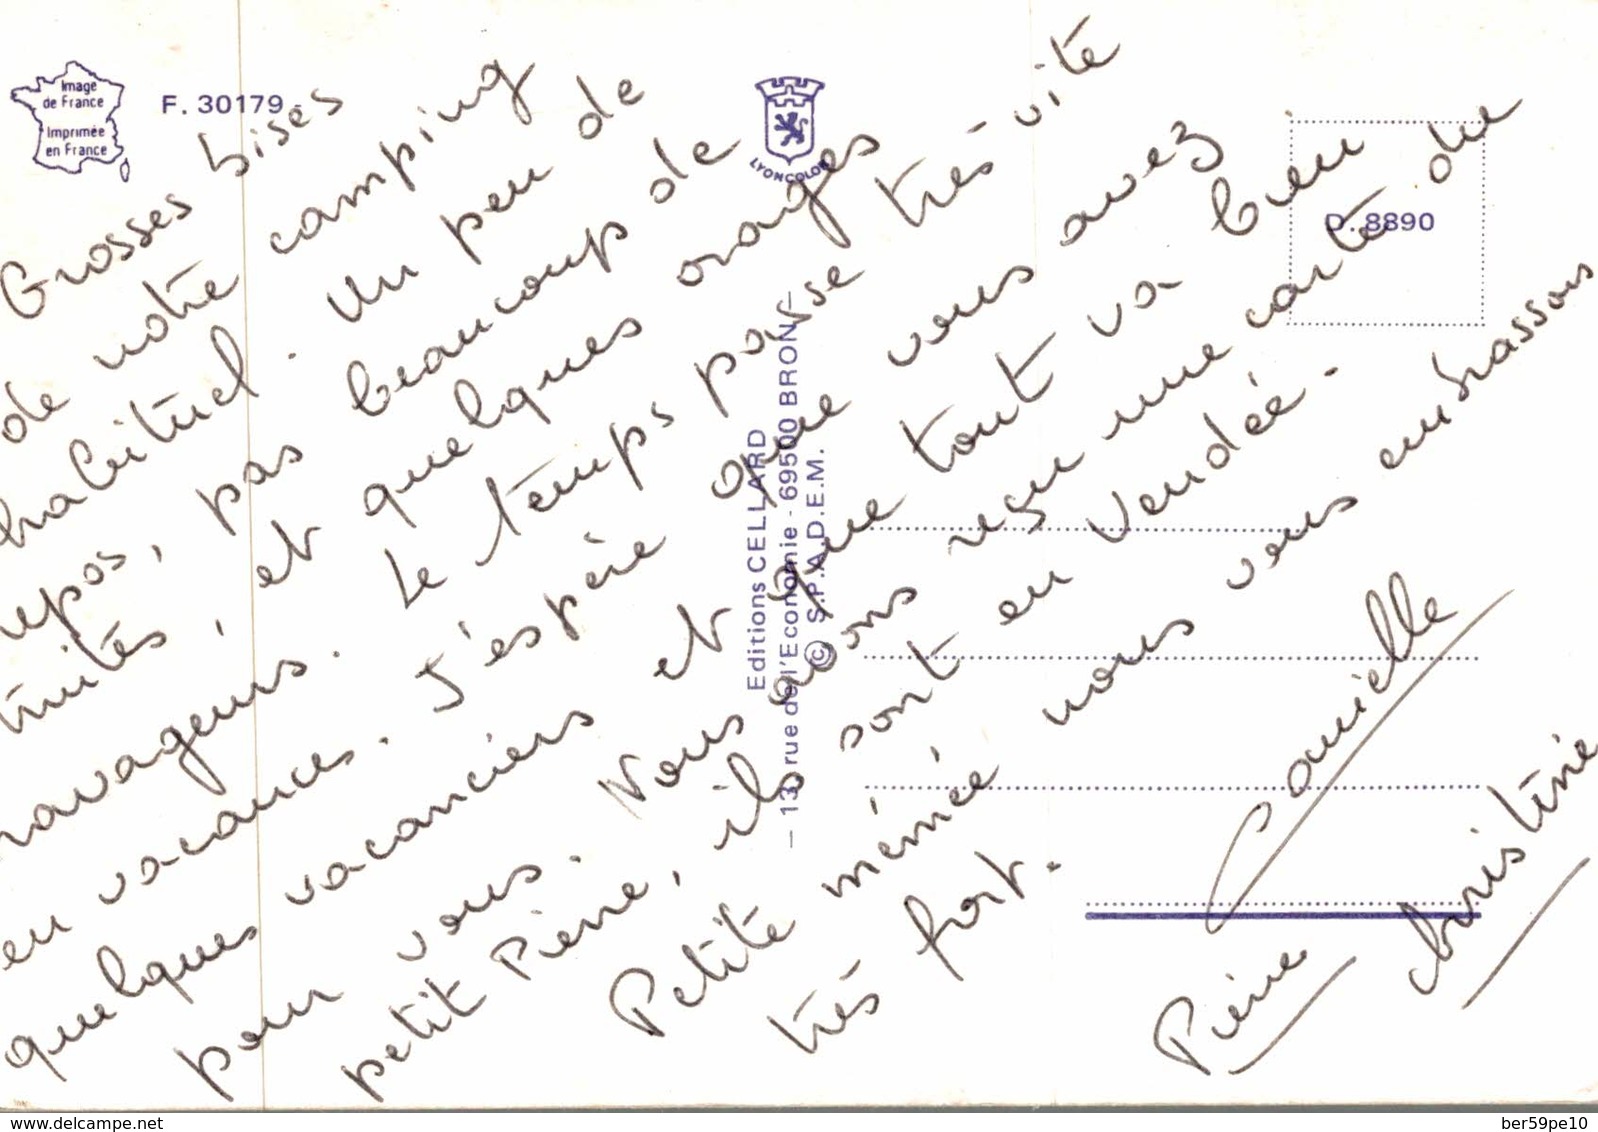 Image
de France
Imprimée
en France
F. 30179
LYONCOLOR
D. 8890
Grosses bises
de notre camping
habituel. Un peu de
repos, pas beaucoup de
truites, et quelques orages
ravageurs. Le temps passe très vite
en vacances. J'espère que vous avez
quelques vacanciers et que tout va bien
pour vous. Nous avons reçu une carte de
petit Pierre, ils sont en Vendée.
Petite mémée nous vous embrassons
très fort.
Danielle
Pierre
Christine
Editions CELLARD
— 13, rue de l'Economie - 69500 BRON
© S.P.A.D.E.M.
www.delcampe.net
ber59pe10